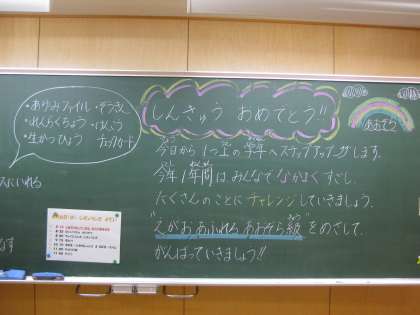 ・あゆみファイル ・ぞうきん
・れんらくちょう
・生かつひょう チェックカード
しんきゅう おめでとう!!
あおぞら
今日から 1つ上の学年へステップアップします。
今年1年間は、みんなでなかよくすごし、
たくさんのことにチャレンジしていきましょう。
"えがおあふれる あおぞら級"をめざして、
がんばっていきましょう!!